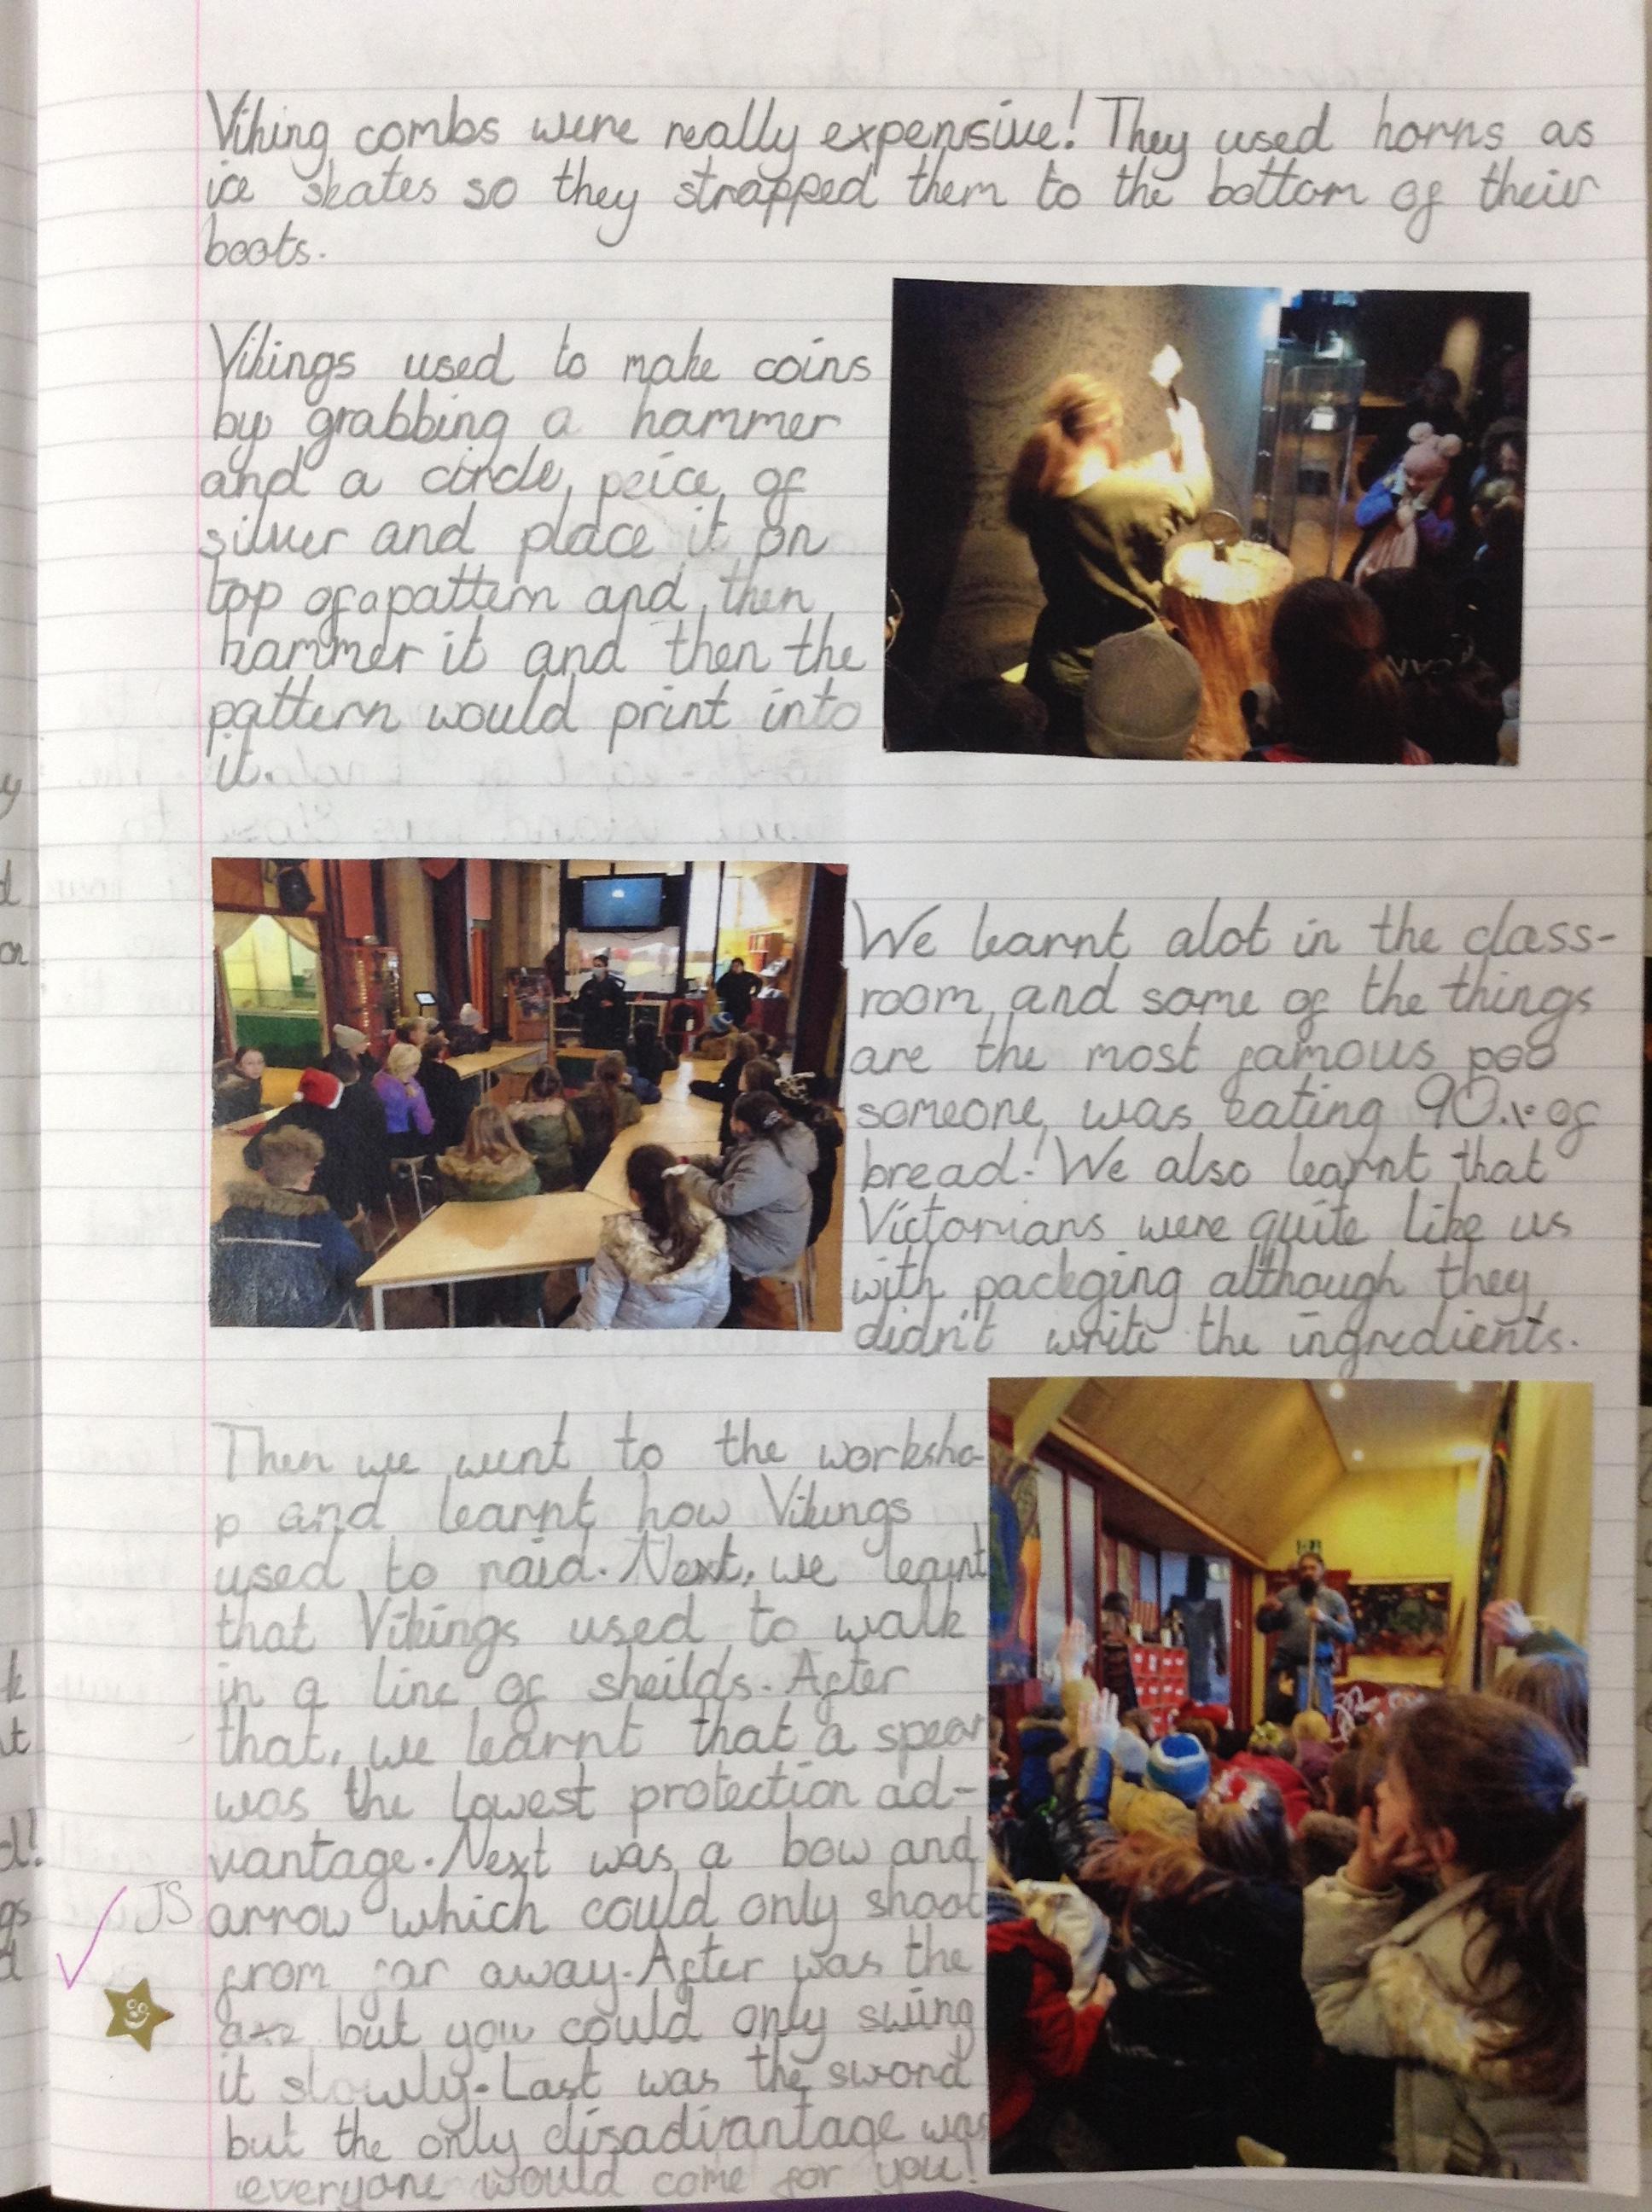 Viking combs were really expensive! They used horns as
ice skates so they strapped them to the bottom of their
boots.
Vikings used to make coins
by grabbing a hammer
and a circle peice of
silver and place it on
top of a pattern and then
hammer it and then the
pattern would print into
it.
We learnt alot in the class-
room and some of the things
are the most famous poo
someone was eating 90% of
bread! We also learnt that
Victorians were quite like us
with packging although they
didn't write the ingredients.
Then we went to the worksho-
p and learnt how Vikings
used to raid. Next, we learnt
that Vikings used to walk
in a line of sheilds. After
that, we learnt that a spear
was the lowest protection ad-
vantage. Next was a bow and
JS arrow which could only shoot
from far away. After was the
axe but you could only swing
it slowly. Last was the sword
but the only disadivantage was
everyone would come for you!